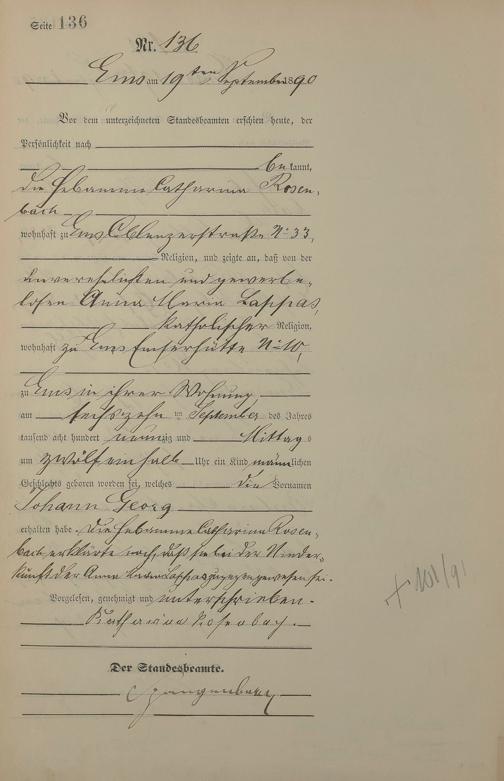 Seite 136
Nr. 136
Ems am 19ten September 1890
Vor dem unterzeichneten Standesbeamten erschien heute, der
Persönlichkeit nach
bekannt,
die Hebamme Catharina Rosen-
bach
wohnhaft zu Ems Coblenzerstraße No 33,
Religion, und zeigte an, daß von der
unverehelichten und gewerbe-
losen Anna Maria Lappas,
katholischer Religion,
wohnhaft zu Ems Emserhütte No 10,
zu Ems in ihrer Wohnung,
am sechszehn ten September des Jahres
tausend acht hundert neunzig und Mittags
um zwölf einhalb Uhr ein Kind männlichen
Geschlechts geboren worden sei, welches die Vornamen
Johann Georg
erhalten habe. Die Hebamme Catharina Rosen-
bach erklärte noch, daß sie bei der Nieder-
kunft der Anna Maria Lappas zugegen gewesen sei.
Vorgelesen, genehmigt und unterschrieben.
Katharina Rosenbach.
Der Standesbeamte.
Spangenberg
+ 101/91